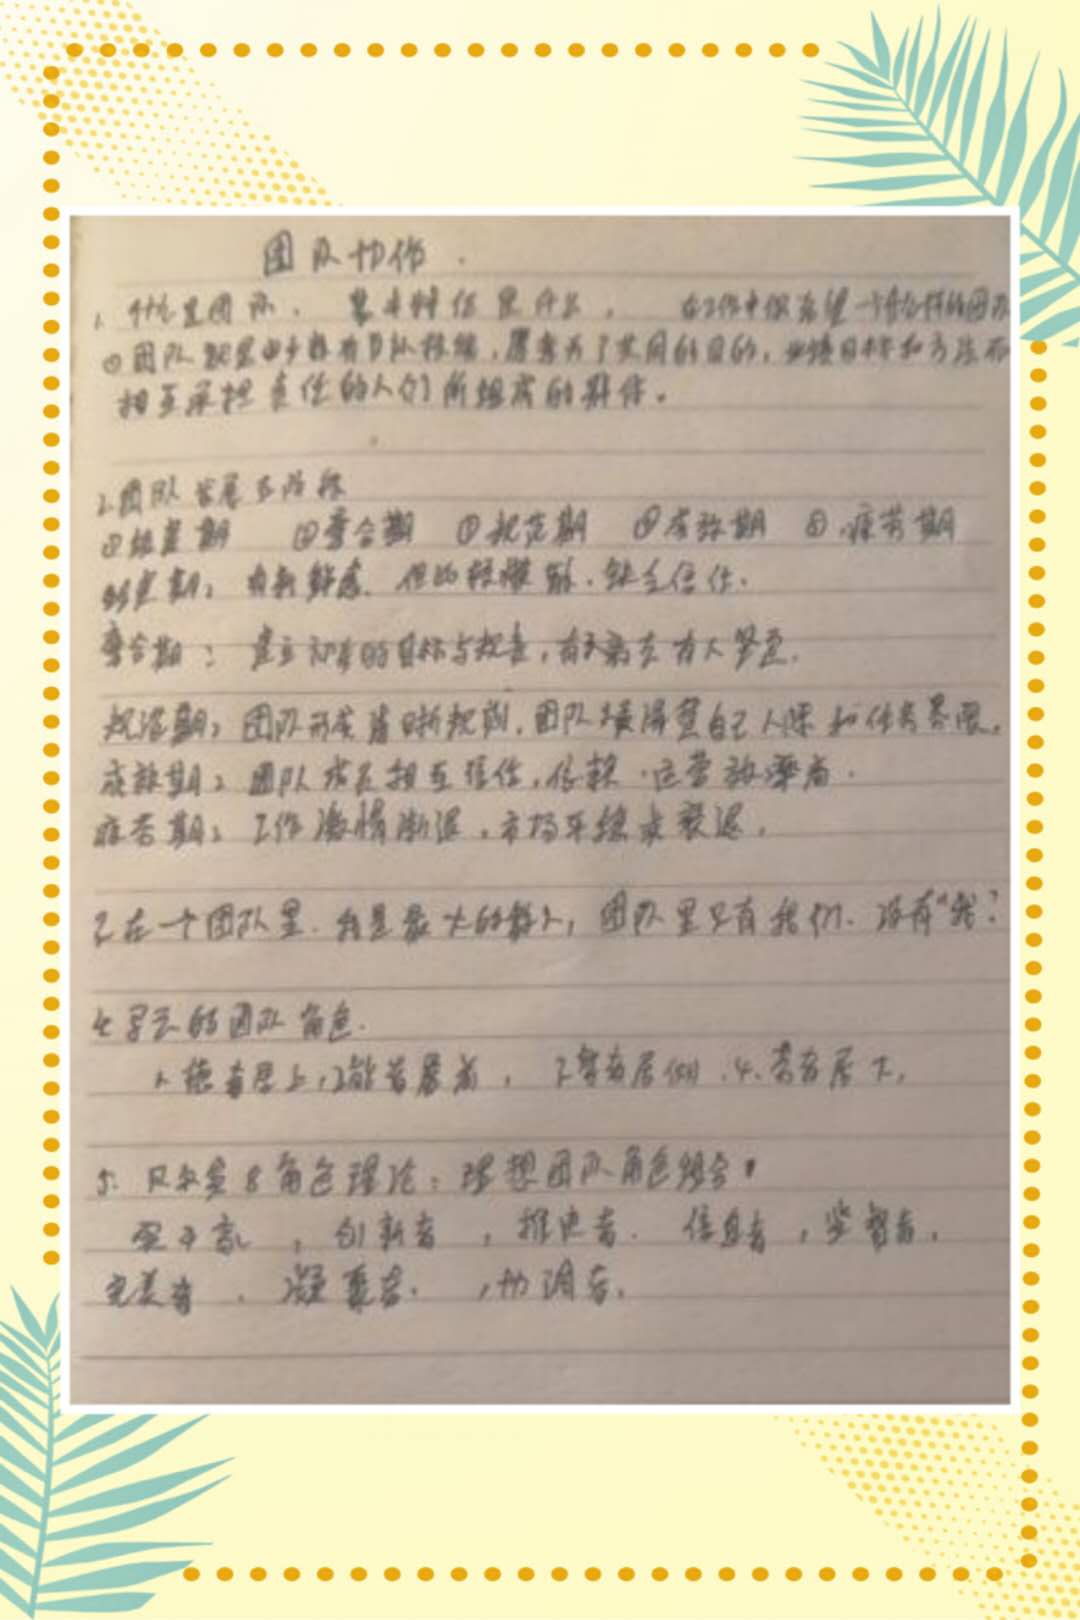 团队协作.
1. 什么是团队、基本特征是什么, 在工作中你希望一个什么样的团队
①团队就是由少数有技能,愿意为了共同的目的,业绩目标和方法而
相互承担责任的人们所组成的群体。
2.团队发展五阶段
①组建期 ②磨合期 ③规范期 ④成效期 ⑤疲劳期
组建期: 有新鲜感、但,缺乏信任.
磨合期: 建立初步的目标与,有人离去有人坚定.
规范期: 团队形成清晰规则,团队自己人际和任务界限。
成效期: 团队成员相互信任,依赖.运营效率高.
疲劳期: 工作激情渐退,市场业绩衰退,
3.在一个团队里.我是最大的敌人, 团队里只有我们.没有"我"
4.的团队角色.
1.德者居上,2能者居前, 3.智者居侧.4.劳者居下,
5. 贝尔宾8角色理论: 理想团队角色组合:
实干家, 创新者, 推进者. 信息者, 监督者,
完美者. 凝聚者. ,协调者.